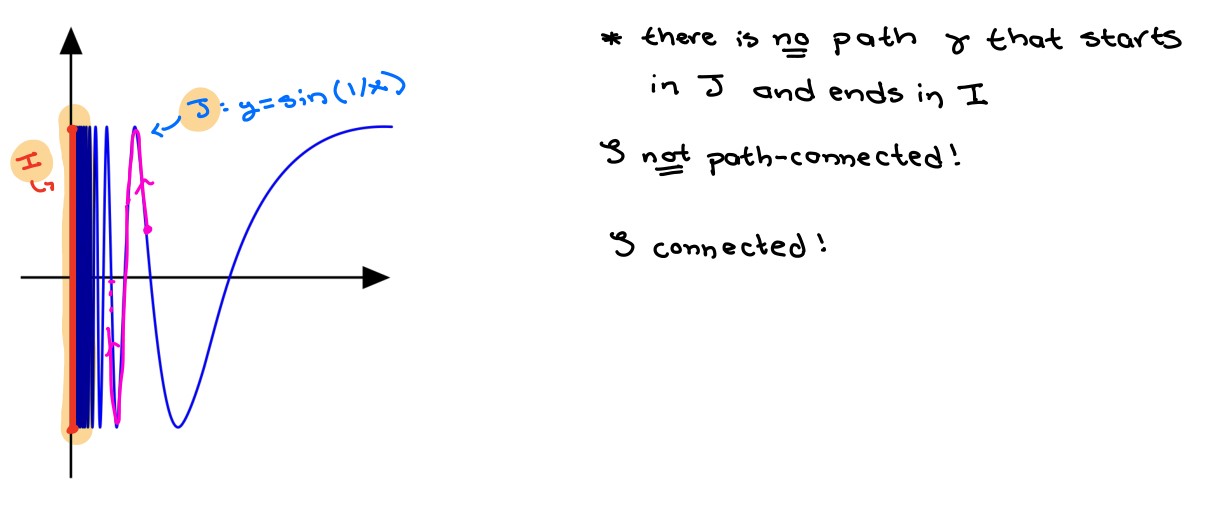 J: y=sin(1/x)
I
* there is no path γ that starts
in J and ends in I
S not path-connected!
S connected!